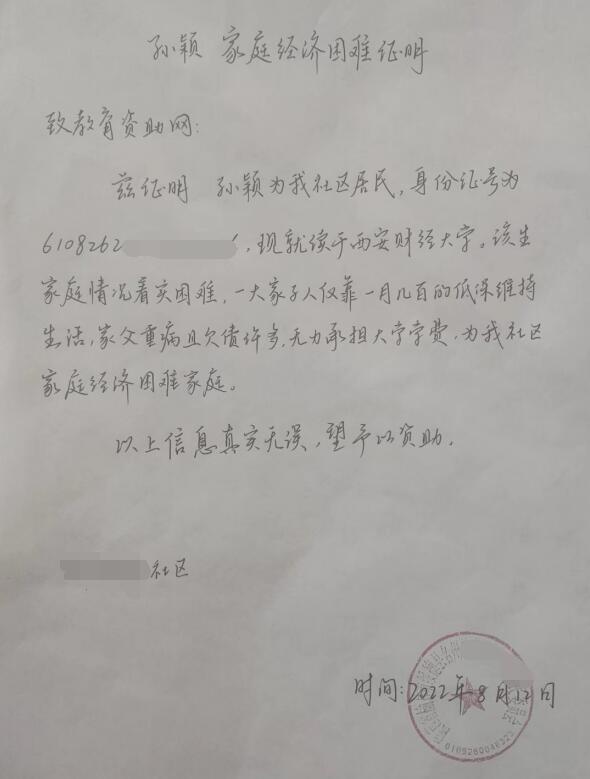 孙颖 家庭经济困难证明
致教育资助网:
兹证明 孙颖为我社区居民,身份证号为
6108262 6,现就读于西安财经大学。该生
家庭情况着实困难,一大家子人仅靠一月几百的低保维持
生活,家父重病且欠债许多,无力承担大学学费,为我社区
家庭经济困难家庭。
以上信息真实无误,望予以资助。
社区
时间:2022年8月12日